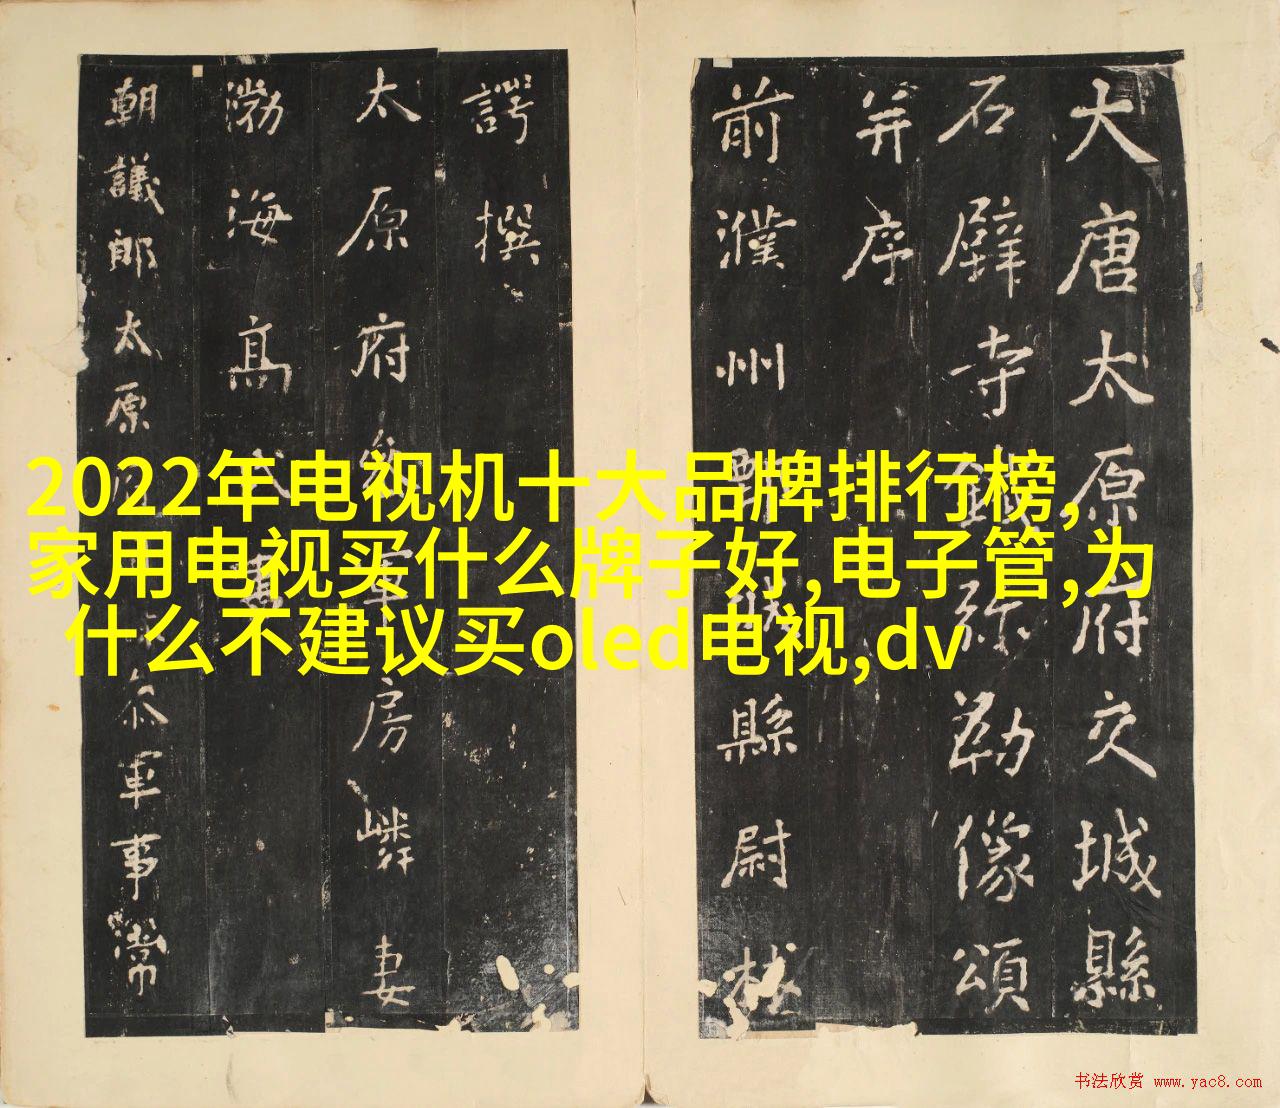 2022年电视机十大品牌排行榜,
家用电视买什么牌子好,电子管,为
什么不建议买oled电视,dv
大唐太原府交城縣
石壁寺鐵弥勒像頌
并序
前濮州鄄城縣尉林
諤撰
太原府參軍房嶙妻
渤海高氏書
朝議郎太原府參軍事常
书法欣赏 www.yac8.com